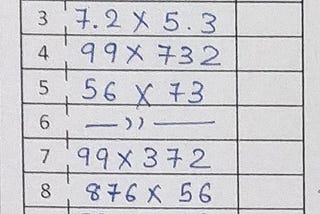 3 7.2 × 5.3
4 99 × 732
5 56 × 73
6 — ,, —
7 99 × 372
8 876 × 56